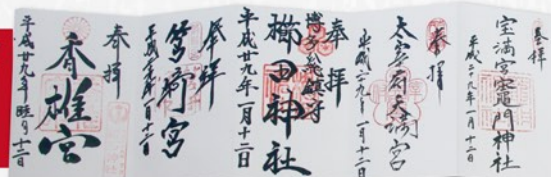 奉拝
宝満宮竈門神社
平成二十九年一月十二日
奉拝
太宰府天満宮
平成二九年一月十二日
奉拝
博多総鎮守
櫛田神社
平成廿九年一月十二日
奉拝
筥崎宮
一月十二日
奉拝
香椎宮
平成廿九年睦月十二日